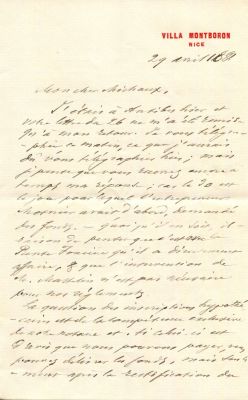 VILLA MONTBORON
NICE
29 avril 1881
Mon cher Michaux,
J'étais à Antibes hier et
votre lettre du 26 ne m'a été remise
qu'à mon retour. Je vous télégra-
phie ce matin, ce que j'aurais
dû vous télégraphier hier; mais
je pense que vous recevrez encore à
temps ma réponse; car le 30 est
le jour pour lequel l'entrepreneur
avait d'abord demandé
des fonds. — Quoi qu'il en soit, il
de penser que c'est
qu'il a
affaire, & que l'intervention de
M. n'est pas nécessaire
pour nos règlements.
La question des inscriptions hypothé-
caires est de la compétence exclusive
de votre notaire et, si celui-ci est
d'avis que nous pouvons payer, vous
pouvez délivrer les fonds, mais
après la rectification du